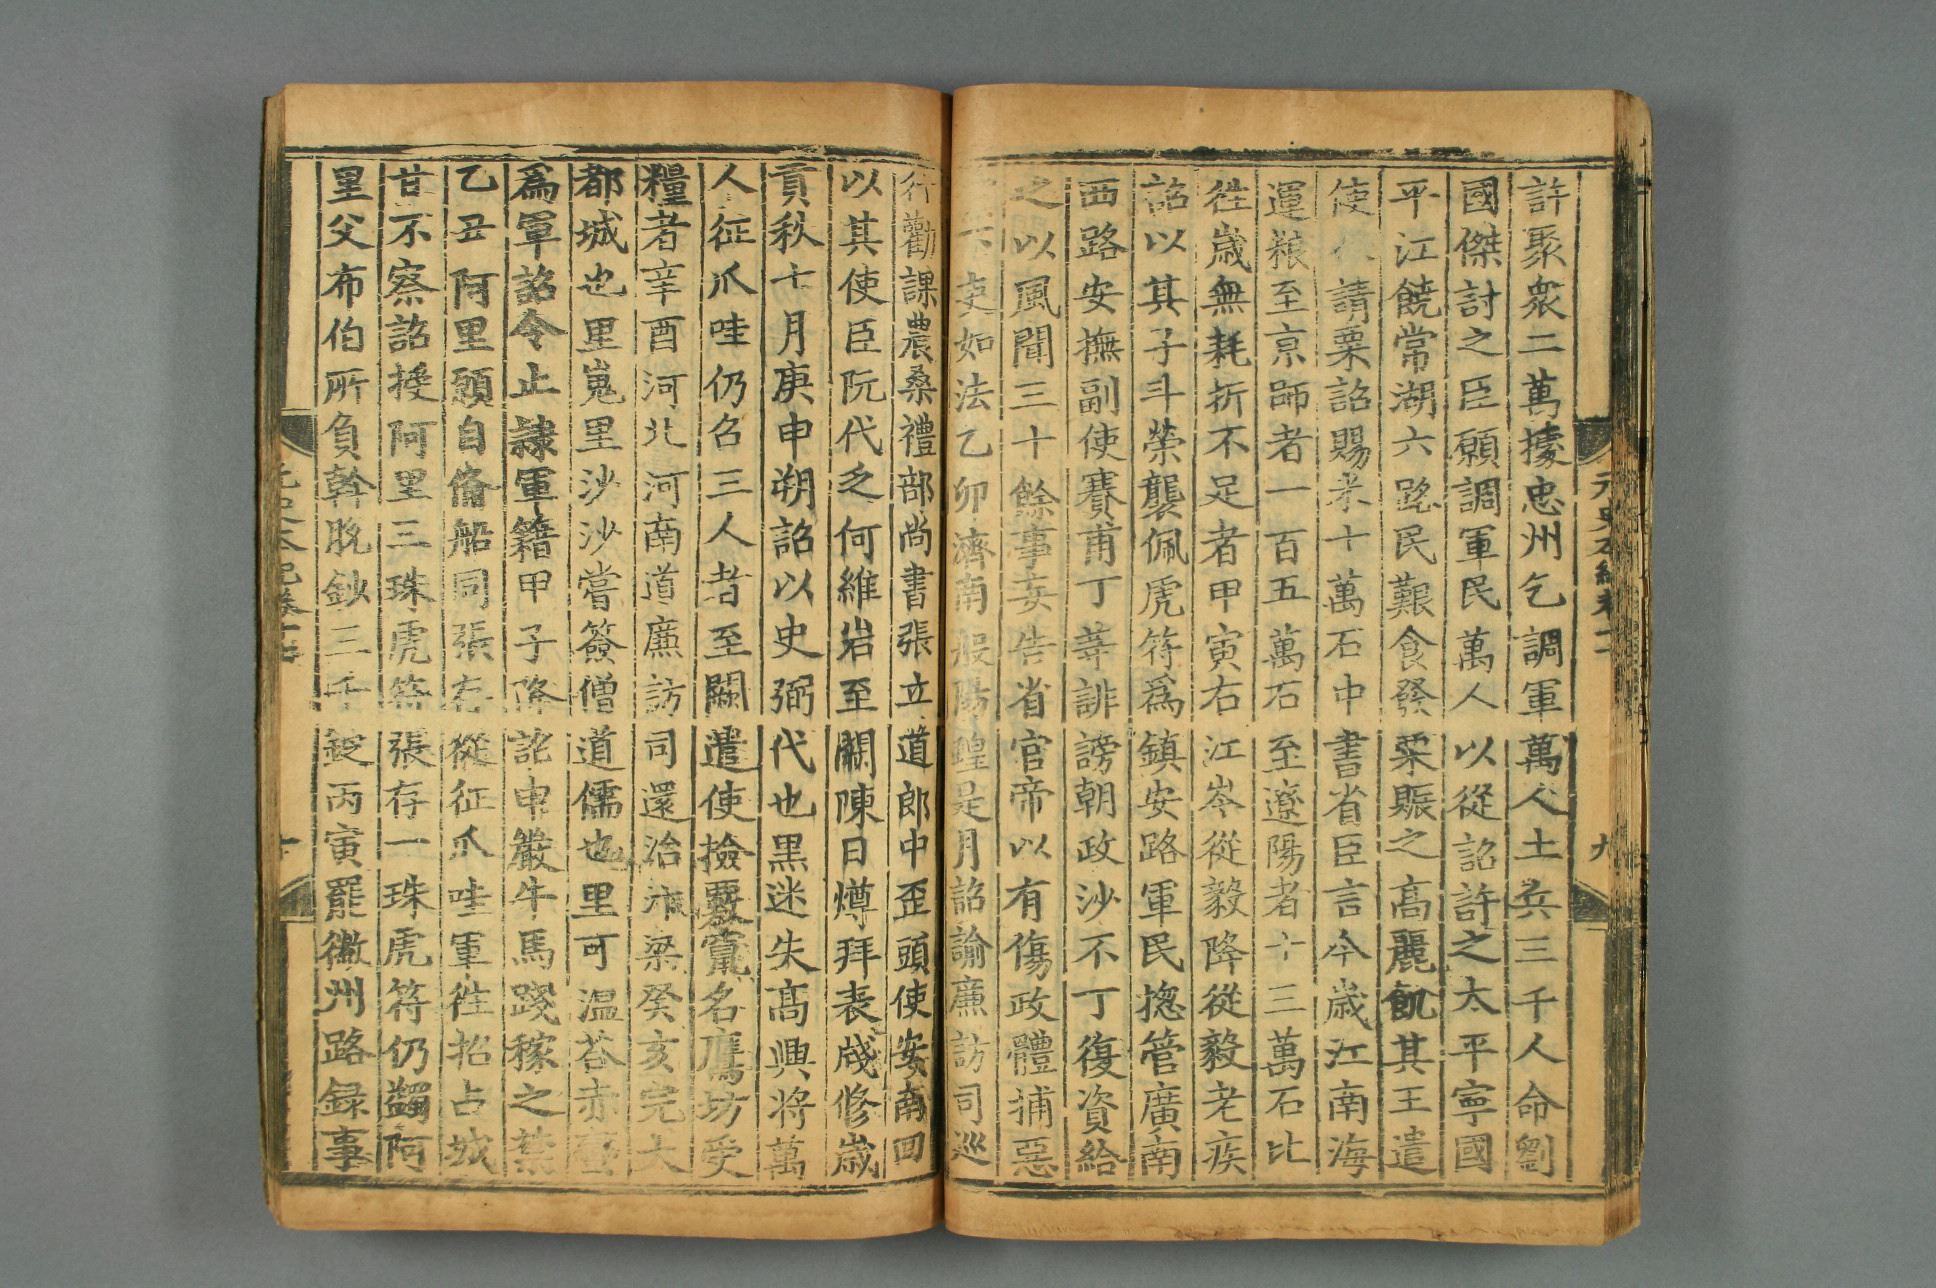 元史本紀卷十
九
許聚衆二萬據忠州乞調軍萬人土兵三千人命劉
國傑討之臣願調軍民萬人以從詔許之太平寧國
平江饒常湖六路民艱食發粟賑之高麗飢其王遣
使來請粟詔賜米十萬石中書省臣言今歲江南海
運粮至京師者一百五萬石至遼陽者十三萬石比
徃歲無耗折不足者甲寅右江岑從毅降從毅老疾
詔以其子斗榮襲佩虎符爲鎮安路軍民揔管廣南
西路安撫副使賽甫丁等誹謗朝政沙不丁復資給
之以風聞三十餘事妄告省官帝以有傷政體捕惡
下吏如法乙卯濟南般陽蝗是月詔諭廉訪司巡
行勸課農桑禮部尚書張立道郎中歪頭使安南囘
以其使臣阮代乏何維岩至闕陳日燇拜表牋修歲
貢秋七月庚申朔詔以史弼代也黑迷失高興將萬
人征爪哇仍召三人者至闕遣使撿覈竄名鷹坊受
糧者辛酉河北河南道廉訪司還治汴梁癸亥完大
都城也里嵬里沙沙嘗簽僧道儒也里可温荅赤蠻
爲軍詔令止隷軍籍甲子降詔申嚴牛馬踐稼之禁
乙丑阿里願自僃船同張存從征爪哇軍徃招占城
甘不察詔授阿里三珠虎符張存一珠虎符仍蠲阿
里父布伯所負斡脫鈔三千錠丙寅罷徽州路録事
元史本紀卷十七
十